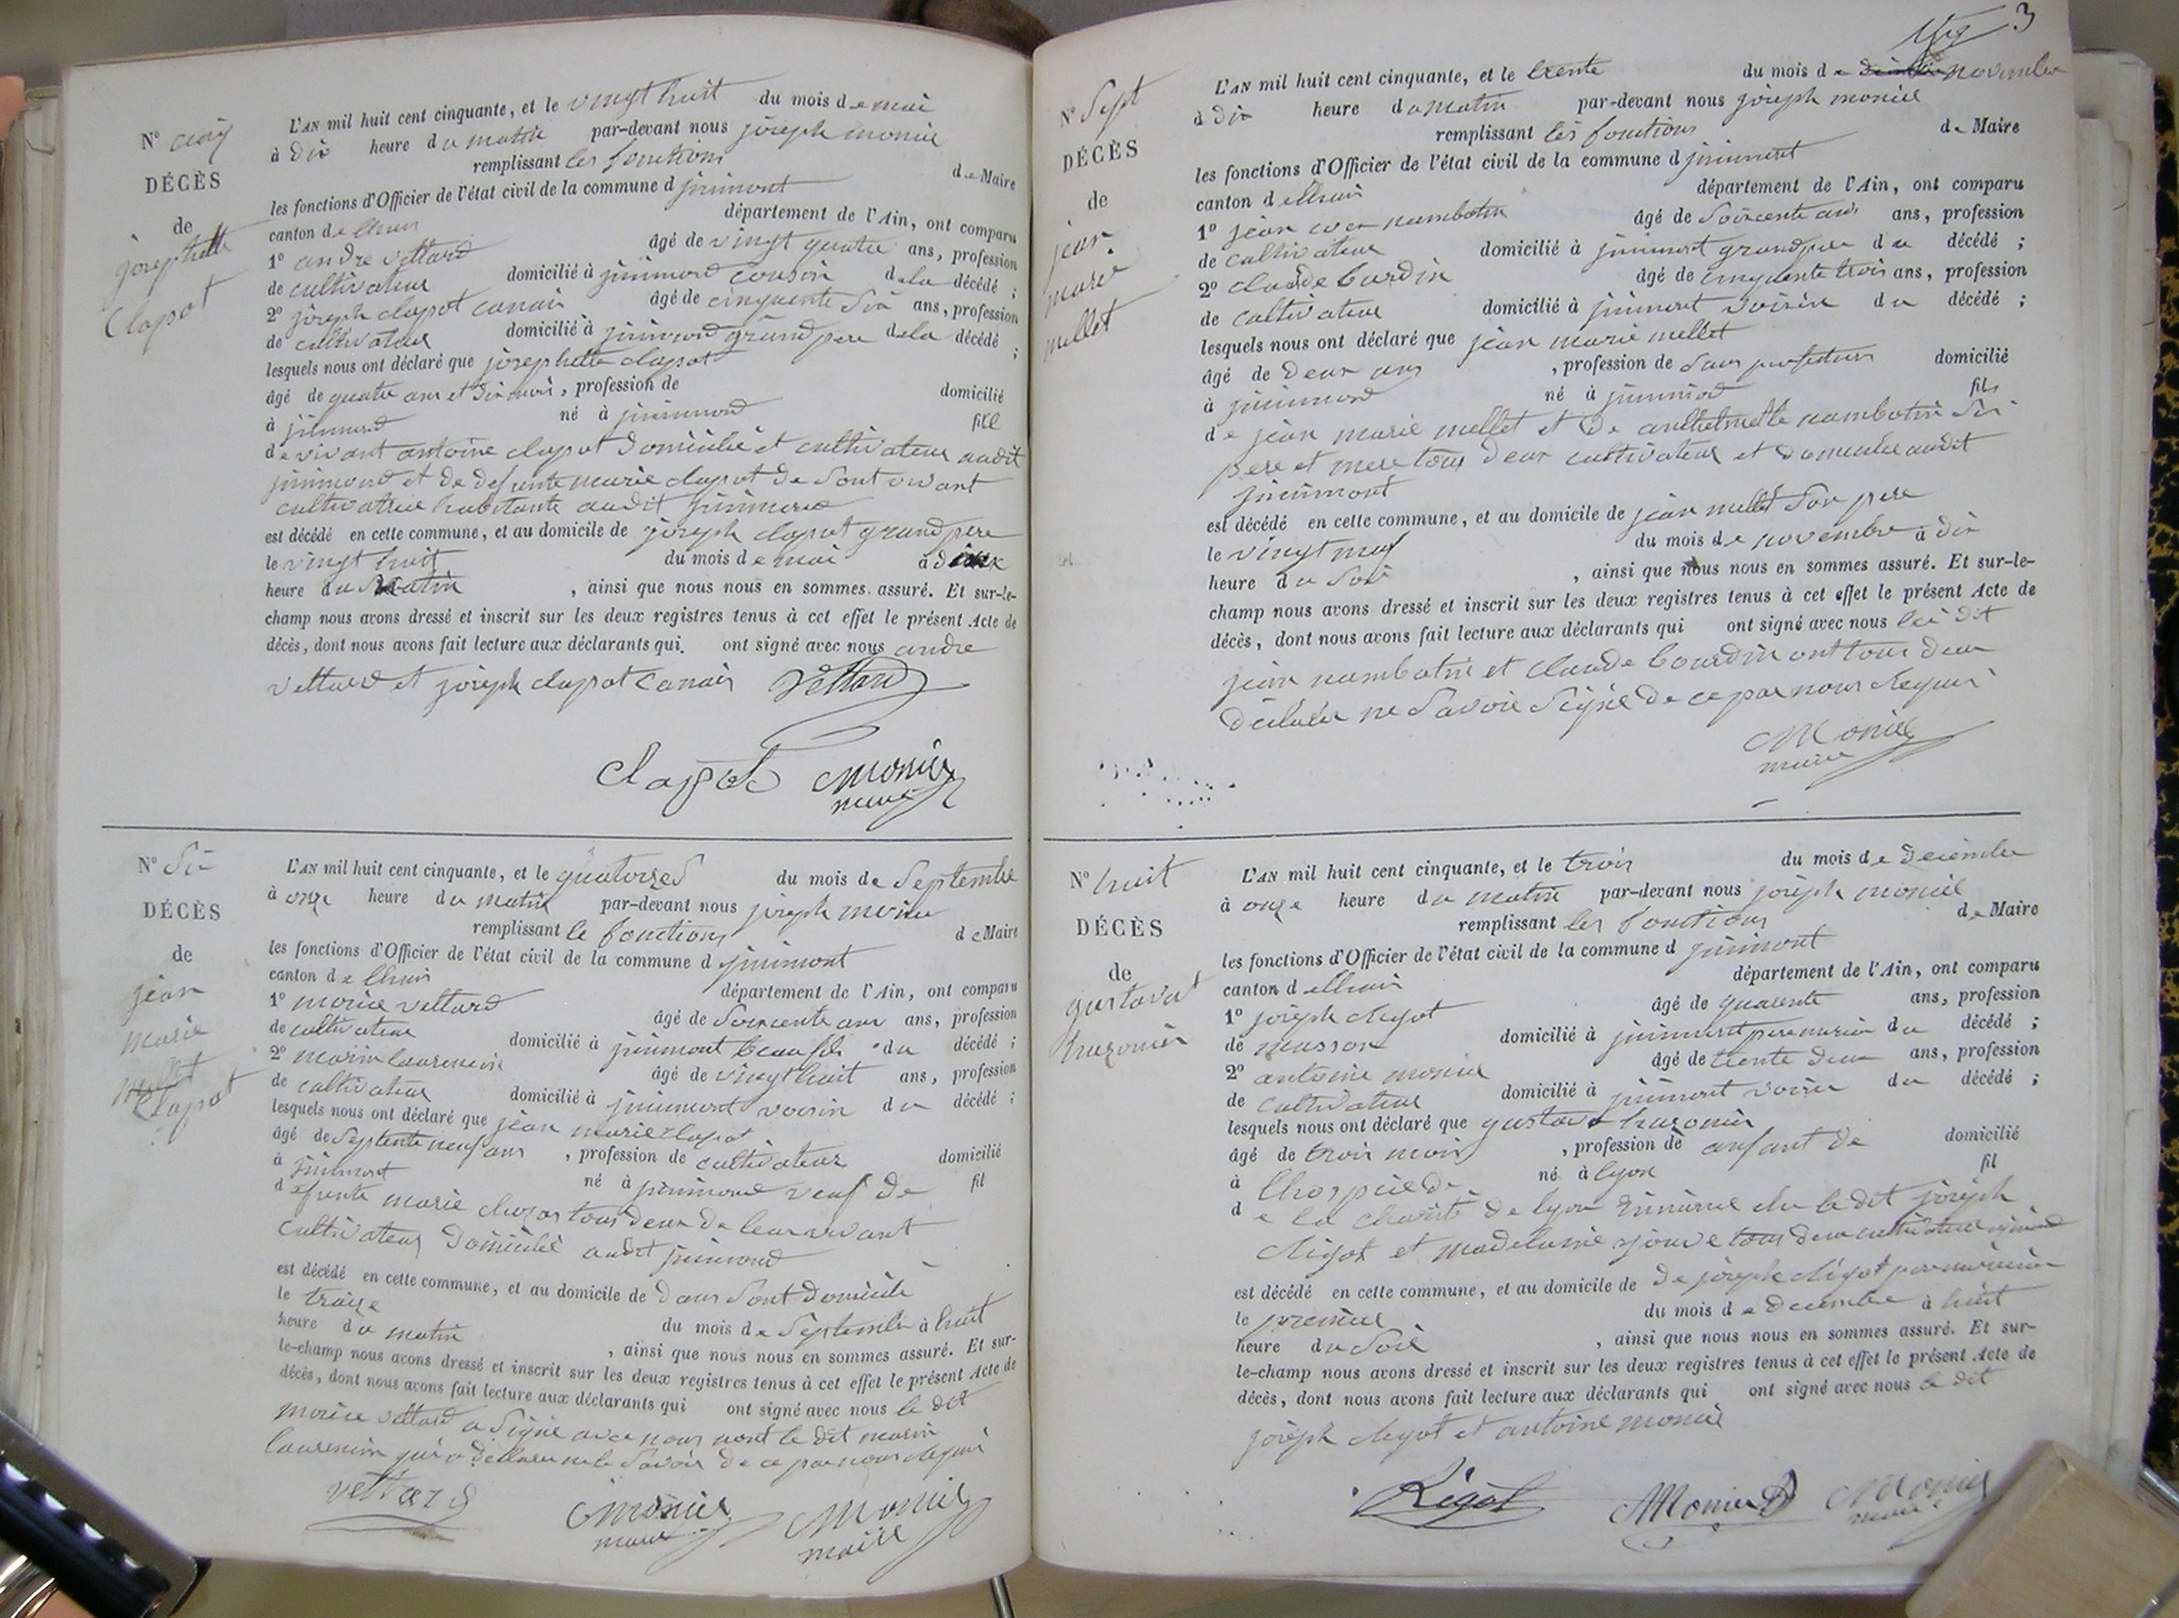 N° cinq
DÉCÈS
de
josephette
Clapot
L'AN mil huit cent cinquante, et le vingt huit du mois de mai
à dix heure du matin par-devant nous joseph monier
remplissant les fonctions de Maire
les fonctions d'Officier de l'état civil de la commune d jnimont
canton de lhuis département de l'Ain, ont comparu
1° andre vettard âgé de vingt quatre ans, profession
de cultivateur domicilié à jnimond cousin de la décédé ;
2° joseph clapot canais âgé de cinquante six ans, profession
de cultivateur domicilié à jnimond grand pere de la décédé ;
lesquels nous ont déclaré que josephette clapot
âgé de quatre ans et dix mois, profession de domicilié
à jnimond né à jnimond fille
de vivant antoine clapot domicilié et cultivateur audit
jnimond et de defunte marie clapot de sont vivant
cultivatrice habitante audit jnimond
est décédé en cette commune, et au domicile de joseph clapot grand pere
le vingt huit du mois de mai à deux
heure du matin, ainsi que nous nous en sommes assuré. Et sur-le-
champ nous avons dressé et inscrit sur les deux registres tenus à cet effet le présent Acte de
décès, dont nous avons fait lecture aux déclarants qui ont signé avec nous andre
vettard et joseph clapot canais Vettard
Clapot Monier
maire
N° Six
DÉCÈS
de
jean
marie
Clapot
L'AN mil huit cent cinquante, et le quatorzes du mois de Septembre
à onze heure du matin par-devant nous joseph monier
remplissant le fonctions de Maire
les fonctions d'Officier de l'état civil de la commune d jnimont
canton de lhuis département de l'Ain, ont comparu
1° morice vettard âgé de Soixcente ans ans, profession
de cultivateur domicilié à jnimont beau fils du décédé ;
2° marin laurencin âgé de vingt huit ans, profession
de cultivateur domicilié à jnimont voisin du décédé ;
lesquels nous ont déclaré que jean marie clapot
âgé de Septente neuf ans, profession de cultivateur domicilié
à jnimont né à jnimond veuf de fil
defunte marie tous deux de leur vivant
cultivateur domicilié audit jnimond
est décédé en cette commune, et au domicile de dans sont domicile
le traize du mois de Septembre à huit
heure du matin, ainsi que nous nous en sommes assuré. Et sur-
le-champ nous avons dressé et inscrit sur les deux registres tenus à cet effet le présent Acte de
décès, dont nous avons fait lecture aux déclarants qui ont signé avec nous le dit
morice vettard a Signé avec nous nont le dit marin
laurencin qui a declaree ne le Savoir de ce par nous requis
vettard Monier Monier
maire maire
3
N° Sept
DÉCÈS
de
jean
marie
mellet
L'AN mil huit cent cinquante, et le trente du mois de novembre
à dix heure du matin par-devant nous joseph monier
remplissant les fonctions de Maire
les fonctions d'Officier de l'état civil de la commune d jnimont
canton de lhuis département de l'Ain, ont comparu
1° jean nambotin âgé de Soixcente ans ans, profession
de cultivateur domicilié à jnimont grand pere du décédé ;
2° claude bourdin âgé de cinquente trois ans, profession
de cultivateur domicilié à jnimont voisin du décédé ;
lesquels nous ont déclaré que jean marie mellet
âgé de deux ans, profession de sans profession domicilié
à jnimond né à jnimond fils
de jean marie mellet et de anthelmette nambotin Ses
pere et mere tous deux cultivateur et domicilié audit
jnimont
est décédé en cette commune, et au domicile de jean mellet Son pere
le vingt neuf du mois de novembre à dix
heure du Soir, ainsi que nous nous en sommes assuré. Et sur-le-
champ nous avons dressé et inscrit sur les deux registres tenus à cet effet le présent Acte de
décès, dont nous avons fait lecture aux déclarants qui ont signé avec nous les dit
jean nambotin et claude bourdin ont tous deux
déclaree ne Savoir Signé de ce par nous requis
Monier
maire
N° huit
DÉCÈS
de
gustave
L'AN mil huit cent cinquante, et le trois du mois de decembre
à onze heure du matin par-devant nous joseph monier
remplissant les fonctions de Maire
les fonctions d'Officier de l'état civil de la commune d jnimont
canton de lhuis département de l'Ain, ont comparu
1° joseph rigot âgé de quarente ans, profession
de masson domicilié à jnimont pere nouricier du décédé ;
2° antoine monier âgé de trente deux ans, profession
de cultivateur domicilié à jnimont voisin du décédé ;
lesquels nous ont déclaré que gustave
âgé de trois mois, profession de anfant de domicilié
à lhospice de né à lyon fil
de la charité de lyon en nourice chez le dit joseph
rigot et madelaine tous deux cultivateur
est décédé en cette commune, et au domicile de de joseph rigot pere nouricier
le premier du mois de decembre à huit
heure du Soir, ainsi que nous nous en sommes assuré. Et sur-
le-champ nous avons dressé et inscrit sur les deux registres tenus à cet effet le présent Acte de
décès, dont nous avons fait lecture aux déclarants qui ont signé avec nous le dit
joseph rigot et antoine monier
Rigot Monier A Monier
maire